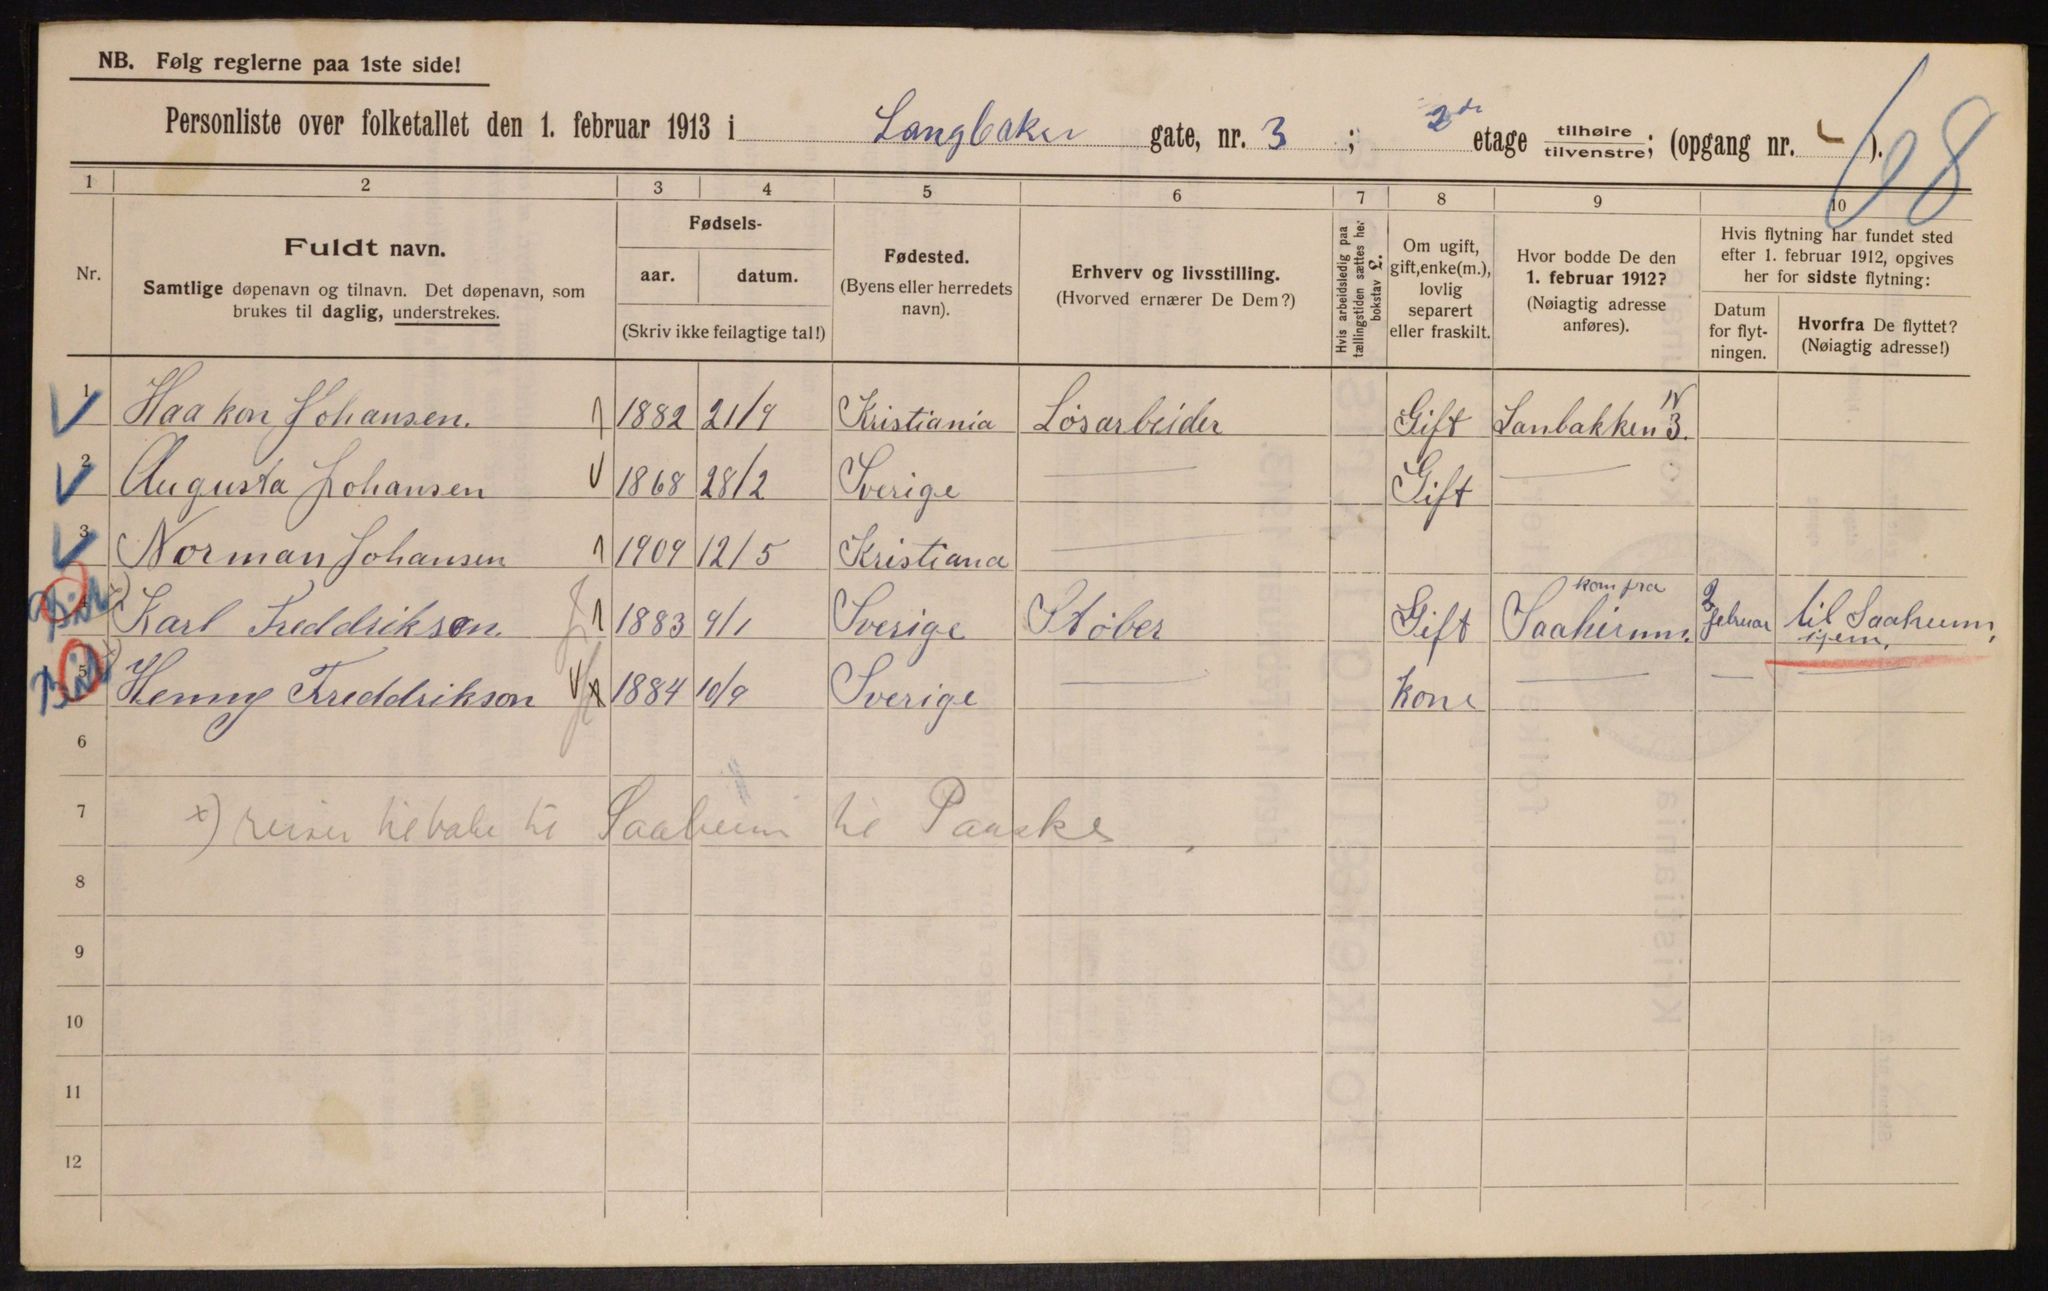 NB. Følg reglerne paa 1ste side!
68
Personliste over folketallet den 1. februar 1913 i Langbaker gate, nr. 3 ; 2de etage tilhøire/tilvenstre; (opgang nr. ).
1 2 3 4 5 6 7 8 9 10
Nr.
Fuldt navn.
Samtlige døpenavn og tilnavn. Det døpenavn, som
brukes til daglig, understrekes.
Fødsels-
aar. datum.
(Skriv ikke feilagtige tal!)
Fødested.
(Byens eller herredets
navn).
Erhverv og livsstilling.
(Hvorved ernærer De Dem?)
Hvis arbeidsledig paa
tællingstiden sættes her
bokstav L.
Om ugift,
gift, enke(m.),
lovlig
separert
eller fraskilt.
Hvor bodde De den
1. februar 1912?
(Nøiagtig adresse
anføres).
Hvis flytning har fundet sted
efter 1. februar 1912, opgives
her for sidste flytning:
Datum
for flyt-
ningen.
Hvorfra De flyttet?
(Nøiagtig adresse!)
1 Haakon Johansen. 1882 21/9 Kristiania Løsarbeider Gift Lanbakken 3. IV
2 Augusta Johansen 1868 28/2 Sverige — Gift —
3 Norman Johansen 1909 12/5 Kristiana —
4 x) Karl Freddrikson 1883 9/1 Sverige Støber Gift kom fra Saaheimm. 2 februar til Saaheum, igjem.
5 x) Henny Freddrikson 1884 10/9 Sverige — kone — — —
6
7 x) reiser tilbake til Saaheim til Paaske
8
9
10
11
12